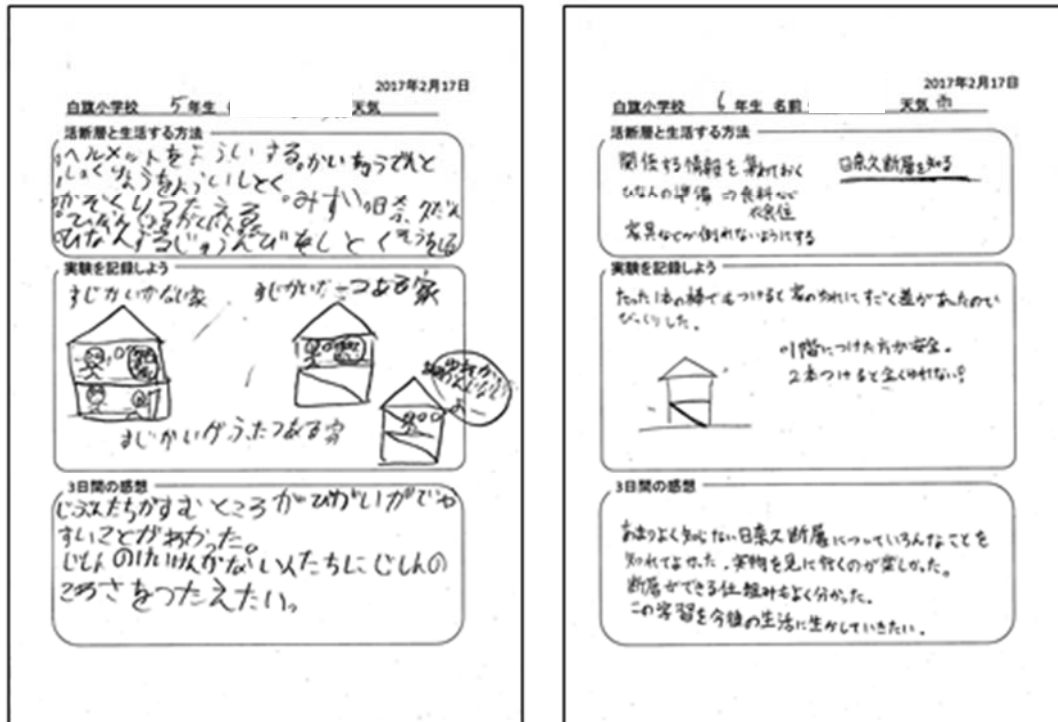 2017年2月17日
白旗小学校 5年生 天気
活断層と生活する方法
ヘルメットをよういする。かいちゅうでんとう
しょくりょうをよういしとく
かぞくでつたえる 。みずい。日奈久だん
ひなんするじゅんびをしとく そうをしる
実験を記録しよう
すじかいがない家 すじかいが一つある家
すじかいがふたつある家
3日間の感想
じぶんたちがすむところがひがいがでや
すいことがわかった。
じしんのけいけんがない人たちにじしんの
こわさをつたえたい。
2017年2月17日
白旗小学校 6年生 名前 天気 雨
活断層と生活する方法
関係する情報を集めておく 日奈久断層を知る
ひなんの準備⇒食料など
衣食住
家具などが倒れないようにする
実験を記録しよう
たった1本の棒でもつけると家のゆれにすごく差があったので
びっくりした。
1階につけた方が安全。
2本つけると全くゆれない!
3日間の感想
あまりよく知らない日奈久断層についていろんなことを
知れてよかった。実物を見に行くのが楽しかった。
断層ができる仕組みもよく分かった。
この学習を今後の生活に生かしていきたい。